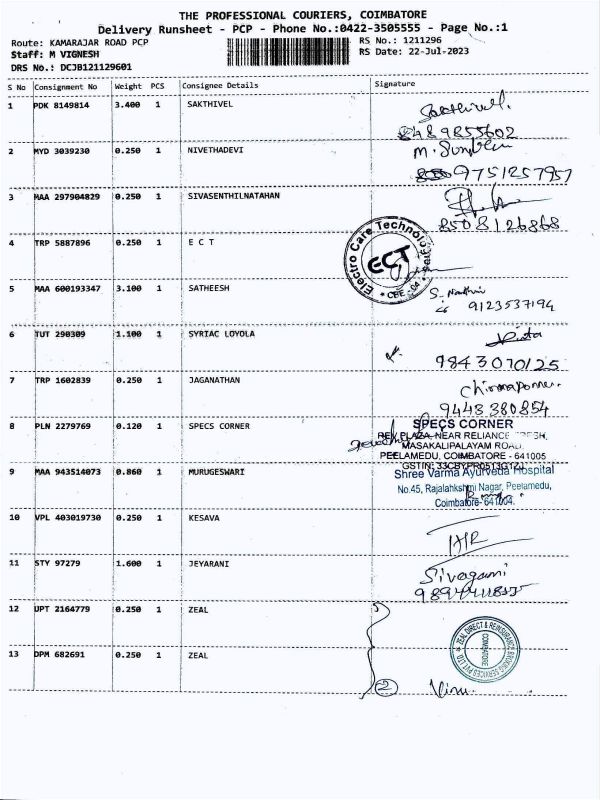 THE PROFESSIONAL COURIERS, COIMBATORE
Delivery Runsheet - PCP - Phone No.:0422-3505555 - Page No.:1
Route: KAMARAJAR ROAD PCP RS No.: 1211296
Staff: M VIGNESH RS Date: 22-Jul-2023
DRS No.: DCJB121129601
S No Consignment No Weight PCS Consignee Details Signature
1 PDK 8149814 3.400 1 SAKTHIVEL Sakthivel.
9855602
2 MYD 3039230 0.250 1 NIVETHADEVI M.
9751257957
3 MAA 297904829 0.250 1 SIVASENTHILNATAHAN
8508126868
4 TRP 5887896 0.250 1 E C T
Electro Care Technologies
ECT
CBE -04
5 MAA 600193347 3.100 1 SATHEESH S.
9123537194
6 TUT 290309 1.100 1 SYRIAC LOYOLA
9843070125
7 TRP 1602839 0.250 1 JAGANATHAN
9443380854
8 PLN 2279769 0.120 1 SPECS CORNER SPECS CORNER
PLAZA, NEAR RELIANCE FRESH,
MASAKALIPALAYAM ROAD,
PEELAMEDU, COIMBATORE - 641005
GSTIN: 33CBYPR0513G1ZJ
9 MAA 943514073 0.860 1 MURUGESWARI Shree Varma Ayurveda Hospital
No.45, Rajalahkshmi Nagar, Peelamedu,
Coimbatore-641004.
10 VPL 403019730 0.250 1 KESAVA
11 STY 97279 1.600 1 JEYARANI Sivagami
12 UPT 2164779 0.250 1 ZEAL
ZEAL DIRECT & REINSURANCE BROKING SERVICES PVT LTD
COIMBATORE
13 DPM 682691 0.250 1 ZEAL
2